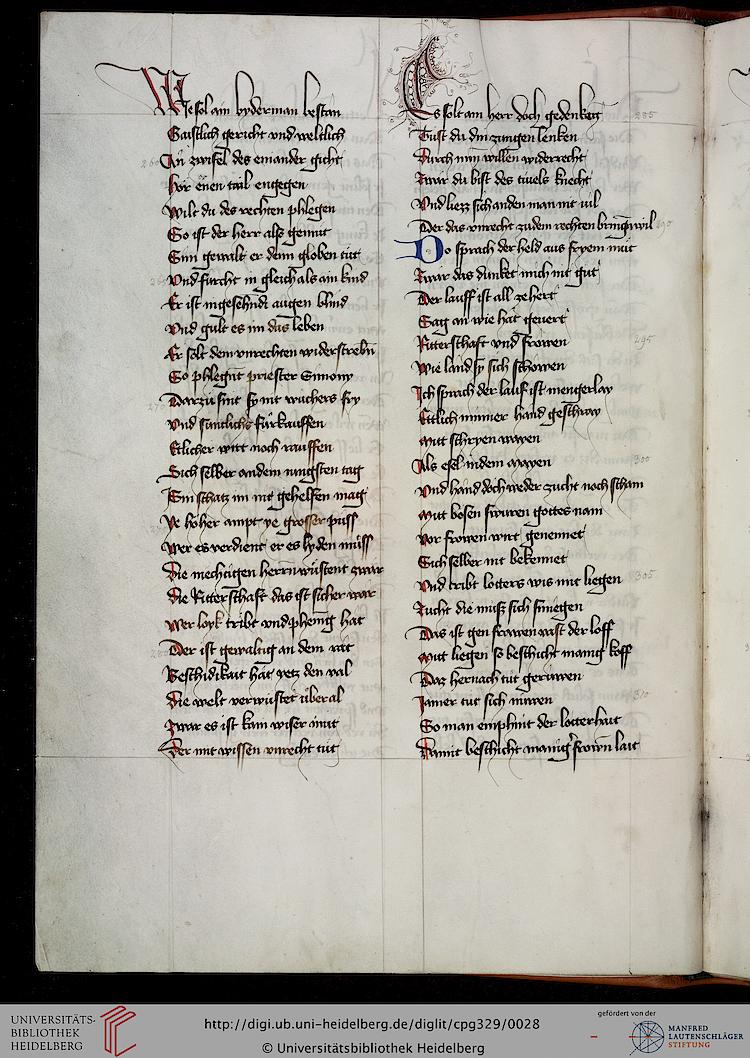 Wie sol ain byderman bestan
Gaistlich gericht vnd weltlich
In zwifel des einander gicht
Hör enen tail engegen
Wilt du des rechten phlegen
So ist der herr alß gemut
Sim gewalt er denn globen tut
Vnd fürcht in gleich als ain kind
Er ist mit gesehndt augen blind
Vnd gult es im das leben
Er solt dem vnrechten widerstrebn
So phlegnt priester Simony
Darzu sint sy nit wuchers fry
Vnd sämlichs fürkauffen
Etlicher wirt noch rauffen
Sich selber an dem iungsten tag
Sin schatz im nit gehelfen mag
Ye höher ampt ye grosser puß
Wer es verdient er es lyden muß
Die mechtigen herrn wüstent zwar
Die Ritterschaft das ist sicher war
Wer loyk tribt vnd phennig hat
Der ist gewaltig an dem rat
Beschidikait hat yetz den val
Die welt verwüstet über al
Zwar es ist kain wiser mut
Der mit wissen vnrecht tut
Es solt ain herr doch gedenken
Tust du din zungen lenken
Durch min willen widerrecht
Zwar du bist des tiuels knecht
Vnd liezz sich anden man nit vil
Der das vnrecht zu dem rechten bringen wil
Do sprach der held aus fryem mut
Zwar das dunket mich nit gut
Der lauff ist all ze hert
Sag an wie hat geuert
Ritterschaft vnd frowen
Wie land sy sich schowen
Ich sprach der lauf ist mengerlay
Ettlich immer hand geschray
Mit schryen wayen
Als esel in dem mayen
Vnd hand doch weder zucht noch scham
Mitt bosen swuren gottes nam
Vor frowen wirt genennet
Sich selber nit bekennet
Vnd tribt lotters wis mit liegen
Zucht die muß sich smiegen
Das ist gen frawen wast der loff
Mitt liegen so beschicht manig koff
Daz hernach tut geruwen
Iamer tut sich nuwen
So man emphint der lotterhait
Damit beschicht manigr frown lait
260
265
270
280
285
290
295
300
305
310
UNIVERSITÄTS-
BIBLIOTHEK
HEIDELBERG
http://digi.ub.uni-heidelberg.de/diglit/cpg329/0028
© Universitätsbibliothek Heidelberg
gefördert von der
MANFRED
LAUTENSCHLÄGER
STIFTUNG